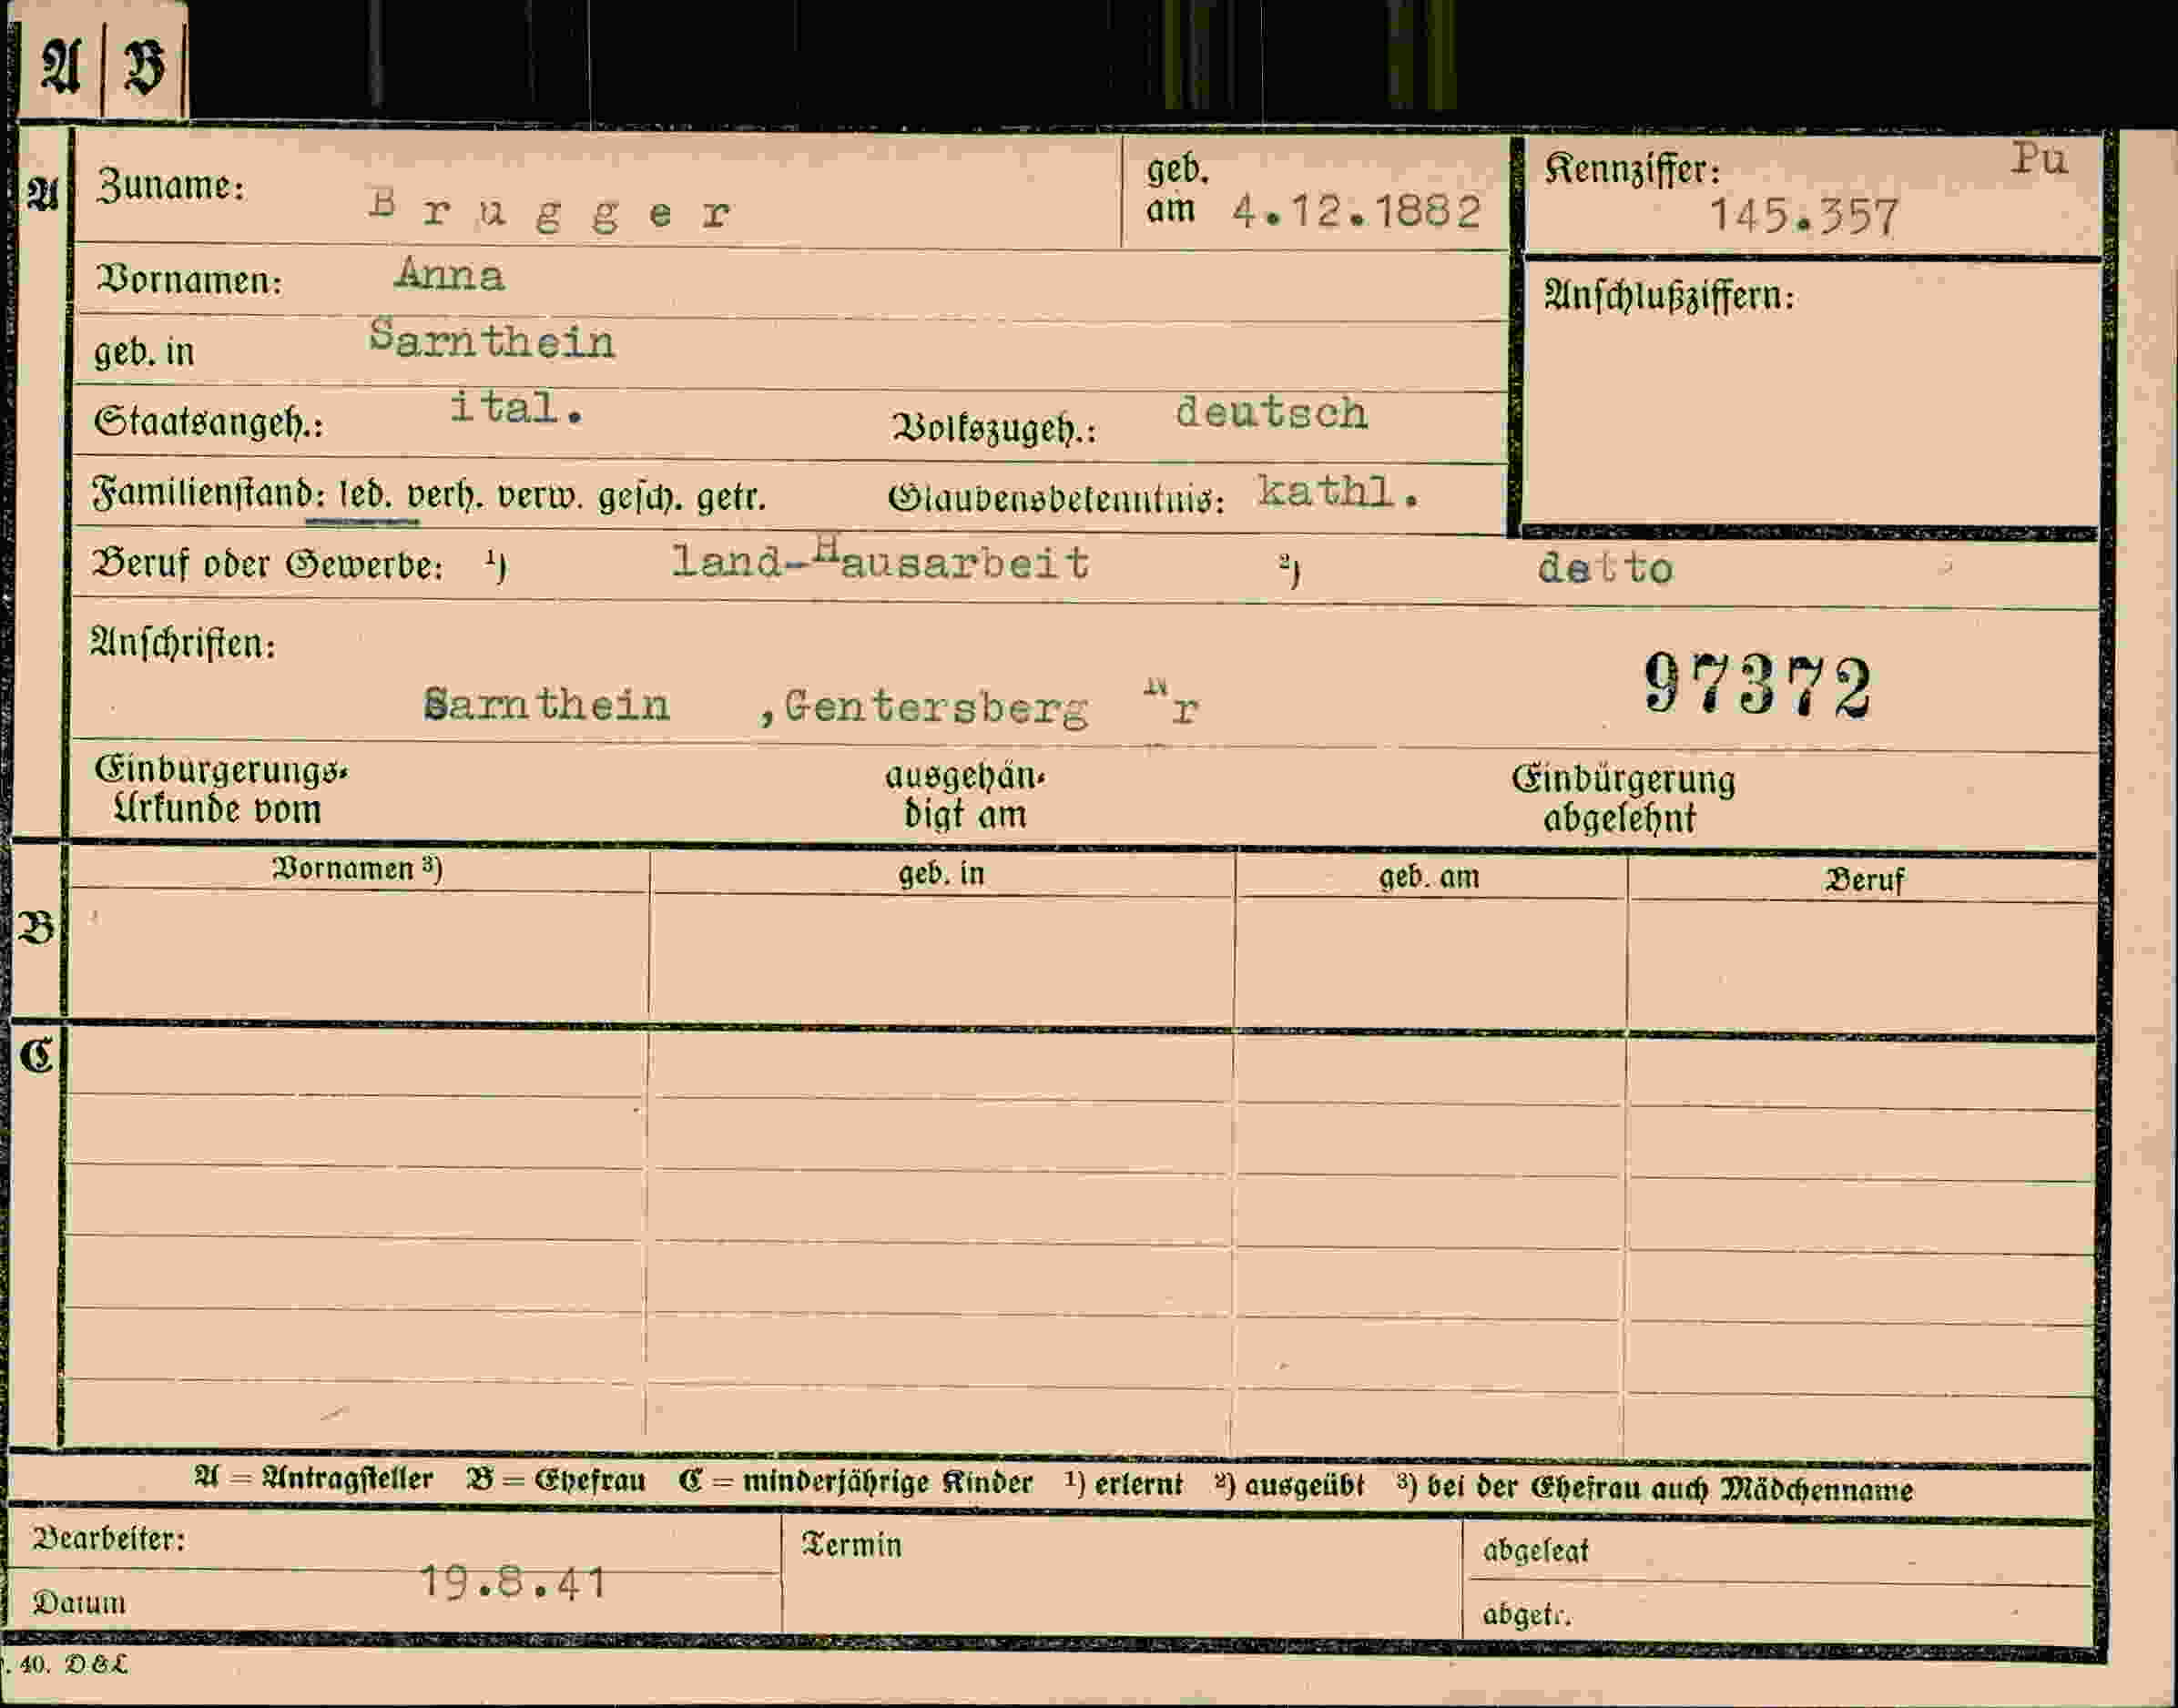 A B
A Zuname: Brugger geb. am 4.12.1882 Kennziffer: Pu 145.357
Vornamen: Anna Anschlußziffern:
geb. in Sarnthein
Staatsangeh.: ital. Volkszugeh.: deutsch
Familienstand: led. verh. verw. gesch. getr. Glaubensbekenntnis: kathl.
Beruf oder Gewerbe: ¹) land-Hausarbeit ²) detto
Anschriften: 97372
Sarnthein ,Gentersberg Nr
Einbürgerungs- ausgehän- Einbürgerung
Urkunde vom digt am abgelehnt
Vornamen ³) geb. in geb. am Beruf
B
C
A = Antragsteller B = Ehefrau C = minderjährige Kinder ¹) erlernt ²) ausgeübt ³) bei der Ehefrau auch Mädchenname
Bearbeiter: Termin abgelegt
19.8.41
Datum abgetr.
. 40. D & L